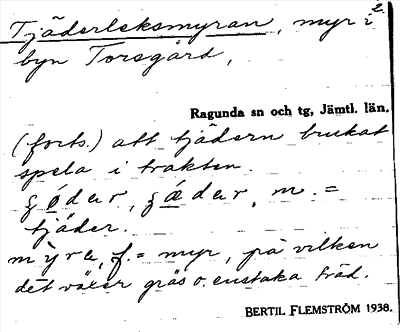 2.
Tjäderleksmyran, myr i
byn Torsgård,
Ragunda sn och tg, Jämtl. län.
(forts.) att tjädern brukat
spela i trakten.
ʒødər, ʒædər, m. =
tjäder.
mỳra, f. = myr, på vilken
det växer gräs o. enstaka träd.
BERTIL FLEMSTRÖM 1938.